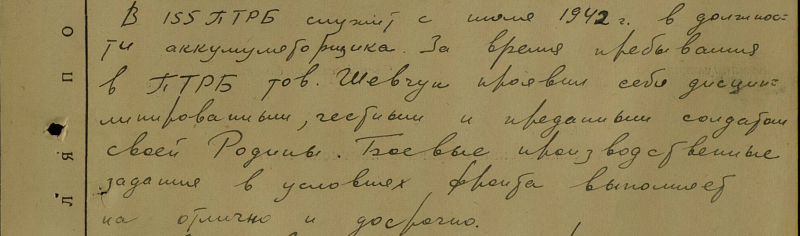 В 155 ПТРБ служит с июля 1942 г. в должнос-
ти аккумуляторщика. За время пребывания
в ПТРБ тов. Шевчук проявил себя дисцип-
линированным, честным и преданным солдатом
своей Родины. Боевые производственные
задания в условиях фронта выполняет
на отлично и досрочно.
ляпо